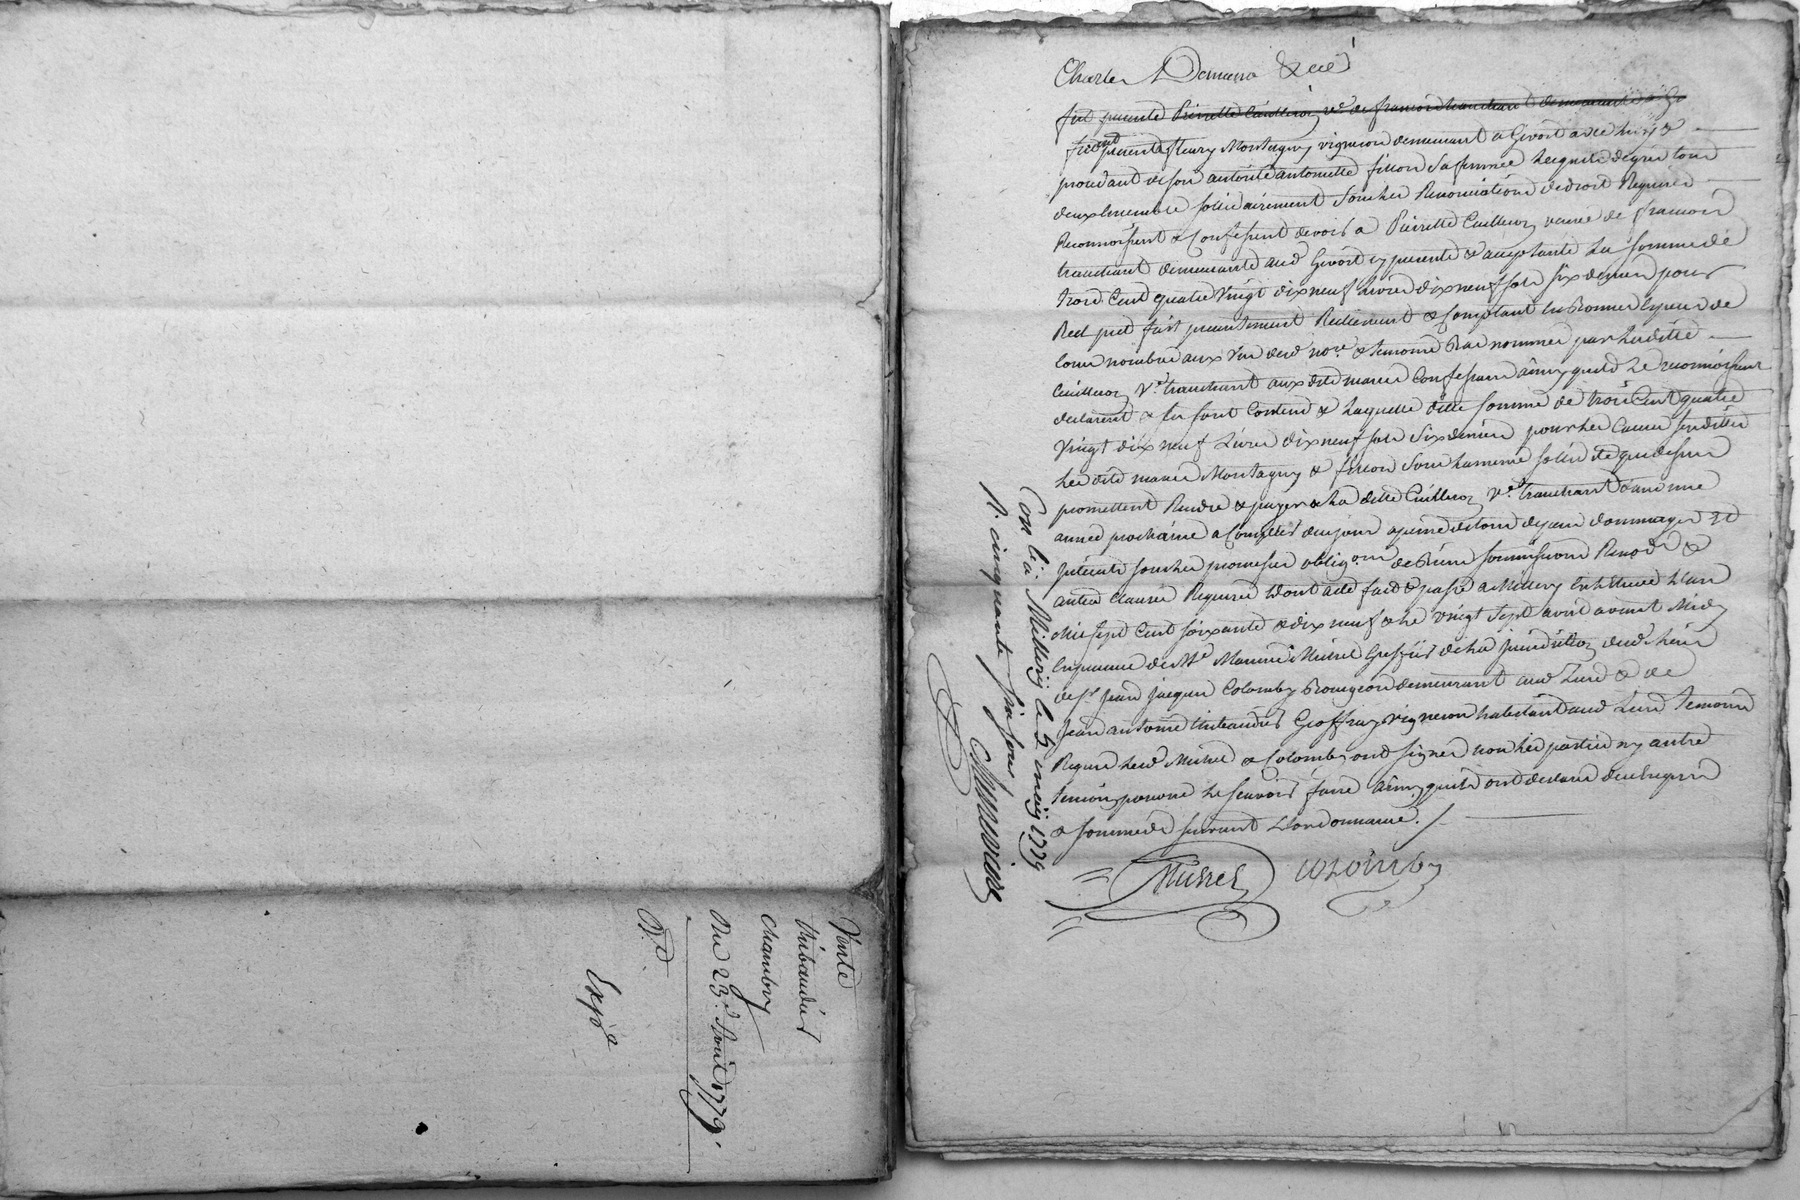 Vente
thibaudier
chambry
Du 23.e Avril 1779.
Exp.e
Charles Demena &ce
fut presente Pierrette Cuilleron ve de francois tranchant demeurante a Gi
furent presents fleury Montagny vigneron demeurant a Givort avec luy &
procedant de son autorité antoinette fillion sa femme lesquels de gré tous
deux ensemble solidairement sous les Renonciations de droit Requises
Reconnoissent & Confessent devoir a Pierrette Cuilleron veuve de francois
tranchant demeurante aud Givort cy presente & acceptante La somme de
trois Cent quatre Vingt dix neuf Livres dix neuf sols six deniers pour
Reel pret fait presentement Reellement & Comptant en Bonnes Especes de
cours nombré aux Vue desd nore & temoins Bas nommés par Laditte
Cuilleron Ve tranchant aux dits mariés Confessans ainsy quils Le reconnoissent
declarent & sen sont Contents & Laquelle ditte somme de trois Cent quatre
Vingt dix neuf Livres dix neuf sols six deniers pour les Causes susdittes
Les dits mariés Montagny & fillion sous La meme solidité que dessus
promettent Rendre & payer a La ditte Cuilleron Ve tranchant dans une
année prochaine a Compter de ce jour a peine de tous depens dommages et
interets sous les promesses obligons de Biens soumissions Renons &
autres clauses Requises Dont acte fait & passé a Millery En Letude L'an
Mil sept Cent soixante & dix neuf & le Vingt sept avril avant Midy
En presence de Me Musset Greffier de La jurisdiction dud Lieu
de sr jean jacques Colomby Bourgeois demeurant aud Lieu & de
Jean antoine thibaudier Geoffray vigneron habitant aud Lieu temoins
Requis Lesd Musset & Colomby ont signé non Les parties ny autre
temoin pour ne le scavoir faire ainsy quils ont declaré de ce Enquis
& sommés suivant L'ordonnance. /
Musset Colomby
Conlé à Millery le 5 may 1779
R. cinquante six sous